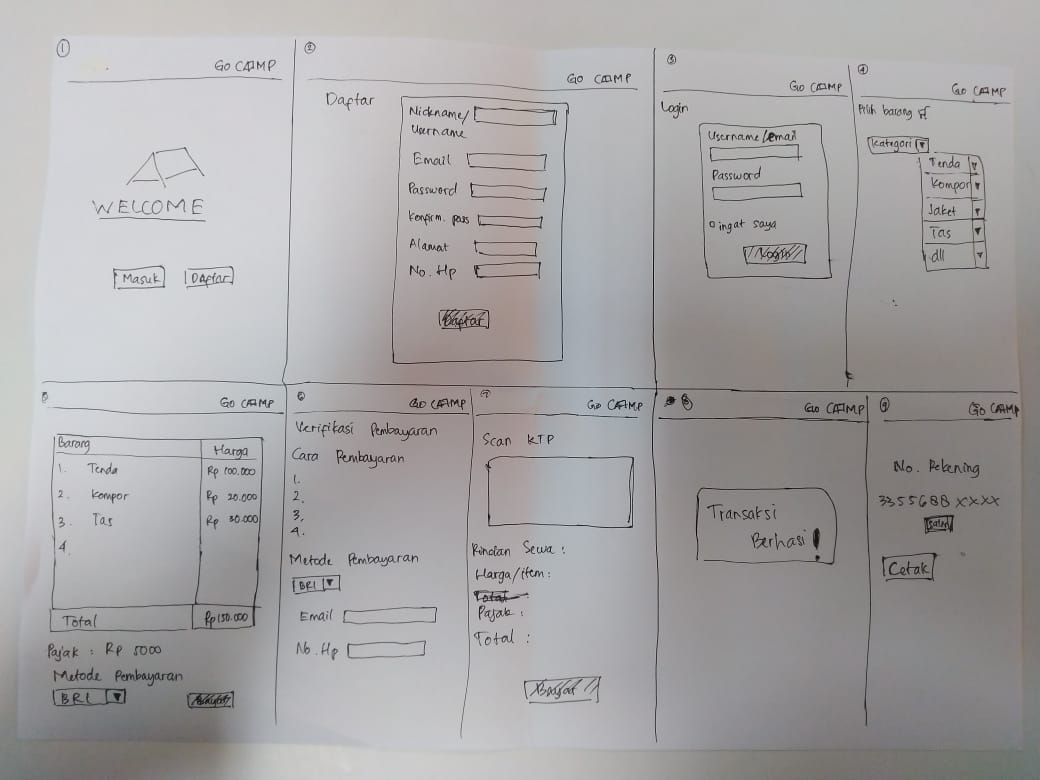 1
GO CAMP
WELCOME
Masuk
Daftar
2
GO CAMP
Daftar
Nickname/
Username
Email
Password
Konfirm. pass
Alamat
No. Hp
Daftar
3
GO CAMP
Login
Username/email
Password
ingat saya
Login
4
GO CAMP
Pilih barang
Kategori
Tenda
Kompor
Jaket
Tas
dll
5
GO CAMP
Barang Harga
1. Tenda Rp 100.000
2. Kompor Rp 20.000
3. Tas Rp 30.000
4.
Total Rp 150.000
Pajak : Rp 5000
Metode Pembayaran
BRI
6
GO CAMP
Verifikasi Pembayaran
Cara Pembayaran
1.
2.
3.
4.
Metode Pembayaran
BRI
Email
No. Hp
7
GO CAMP
Scan KTP
Rincian Sewa :
Harga/item :
Total :
Pajak :
Total :
Bayar
8
GO CAMP
Transaksi
Berhasil
9
GO CAMP
No. Rekening
3355688 XXXX
Salin
Cetak